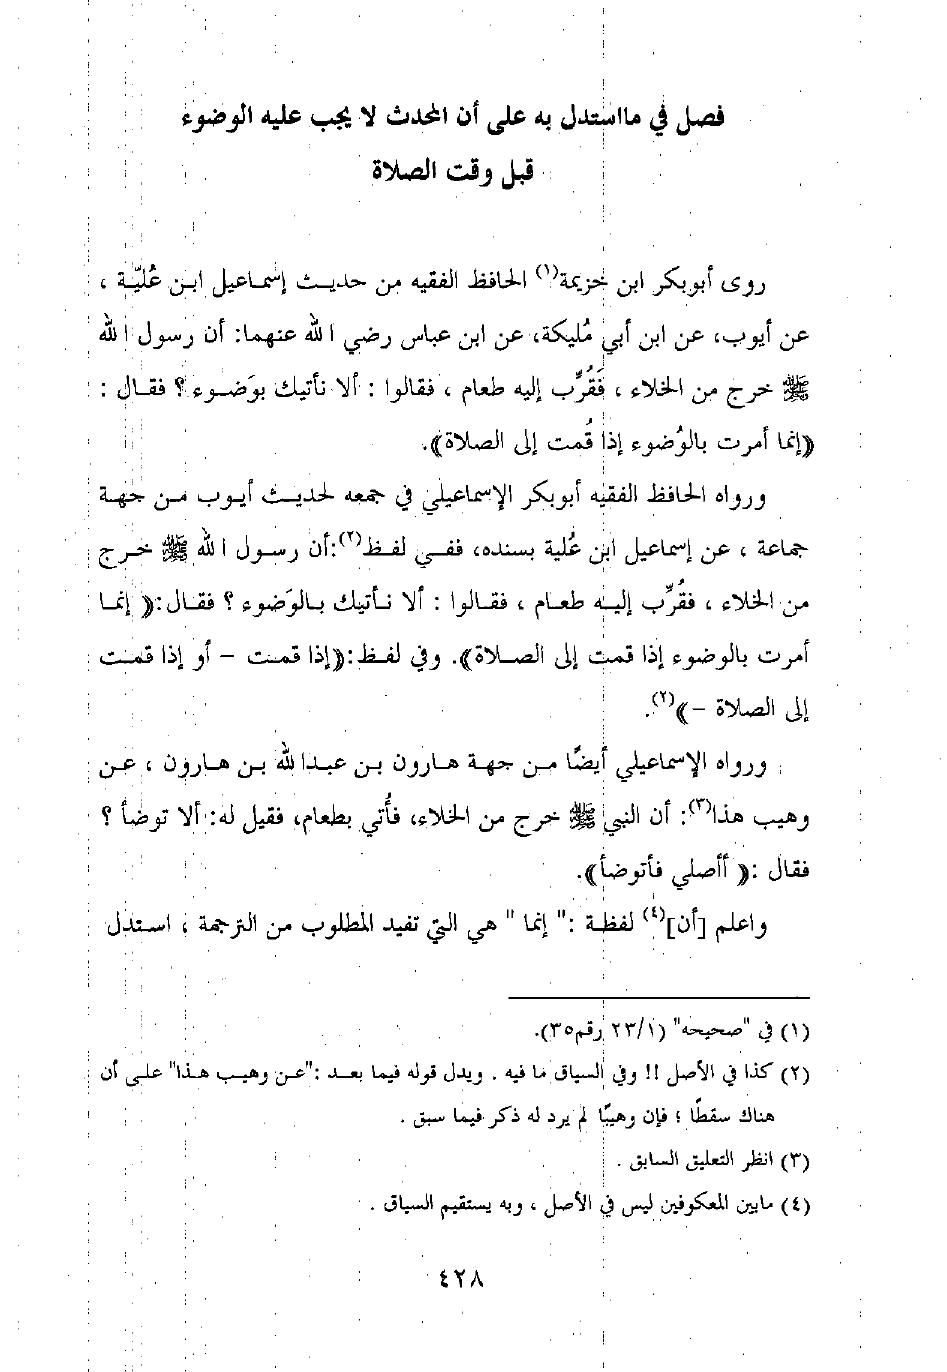 فصل في مااستدل به على أن المحدث لا يجب عليه الوضوء
قبل وقت الصلاة
روى أبوبكر ابن خزيمة(١) الحافظ الفقيه من حديث إسماعيل ابن عُليّة ،
عن أيوب، عن ابن أبي مُليكة، عن ابن عباس رضي الله عنهما: أن رسول الله
ﷺ خرج من الخلاء ، فَقُرِّب إليه طعام ، فقالوا : ألا نأتيك بوَضوء ؟ فقال :
((إنما أمرت بالوُضوء إذا قُمت إلى الصلاة)).
ورواه الحافظ الفقيه أبوبكر الإسماعيلي في جمعه لحديث أيوب من جهة
جماعة ، عن إسماعيل ابن عُلية بسنده، ففي لفظ(٢):أن رسول الله ﷺ خرج
من الخلاء ، فقُرِّب إليه طعام ، فقالوا : ألا نأتيك بالوَضوء ؟ فقال:(( إنما
أمرت بالوضوء إذا قمت إلى الصلاة)). وفي لفظ:((إذا قمت - أو إذا قمت
إلى الصلاة -))(٢).
ورواه الإسماعيلي أيضًا من جهة هارون بن عبدالله بن هارون ، عن
وهيب هذا(٣): أن النبي ﷺ خرج من الخلاء، فأُتي بطعام، فقيل له: ألا توضأ ؟
فقال :(( أأصلي فأتوضأ)).
واعلم [أن](٤) لفظة :" إنما " هي التي تفيد المطلوب من الترجمة ، استدل
(١) في "صحيحه" (٢٣/١ رقم٣٥).
(٢) كذا في الأصل !! وفي السياق ما فيه . ويدل قوله فيما بعد :"عن وهيب هذا" على أن
هناك سقطًا ؛ فإن وهيبًا لم يرد له ذكر فيما سبق .
(٣) انظر التعليق السابق .
(٤) مابين المعكوفين ليس في الأصل ، وبه يستقيم السياق .
٤٢٨